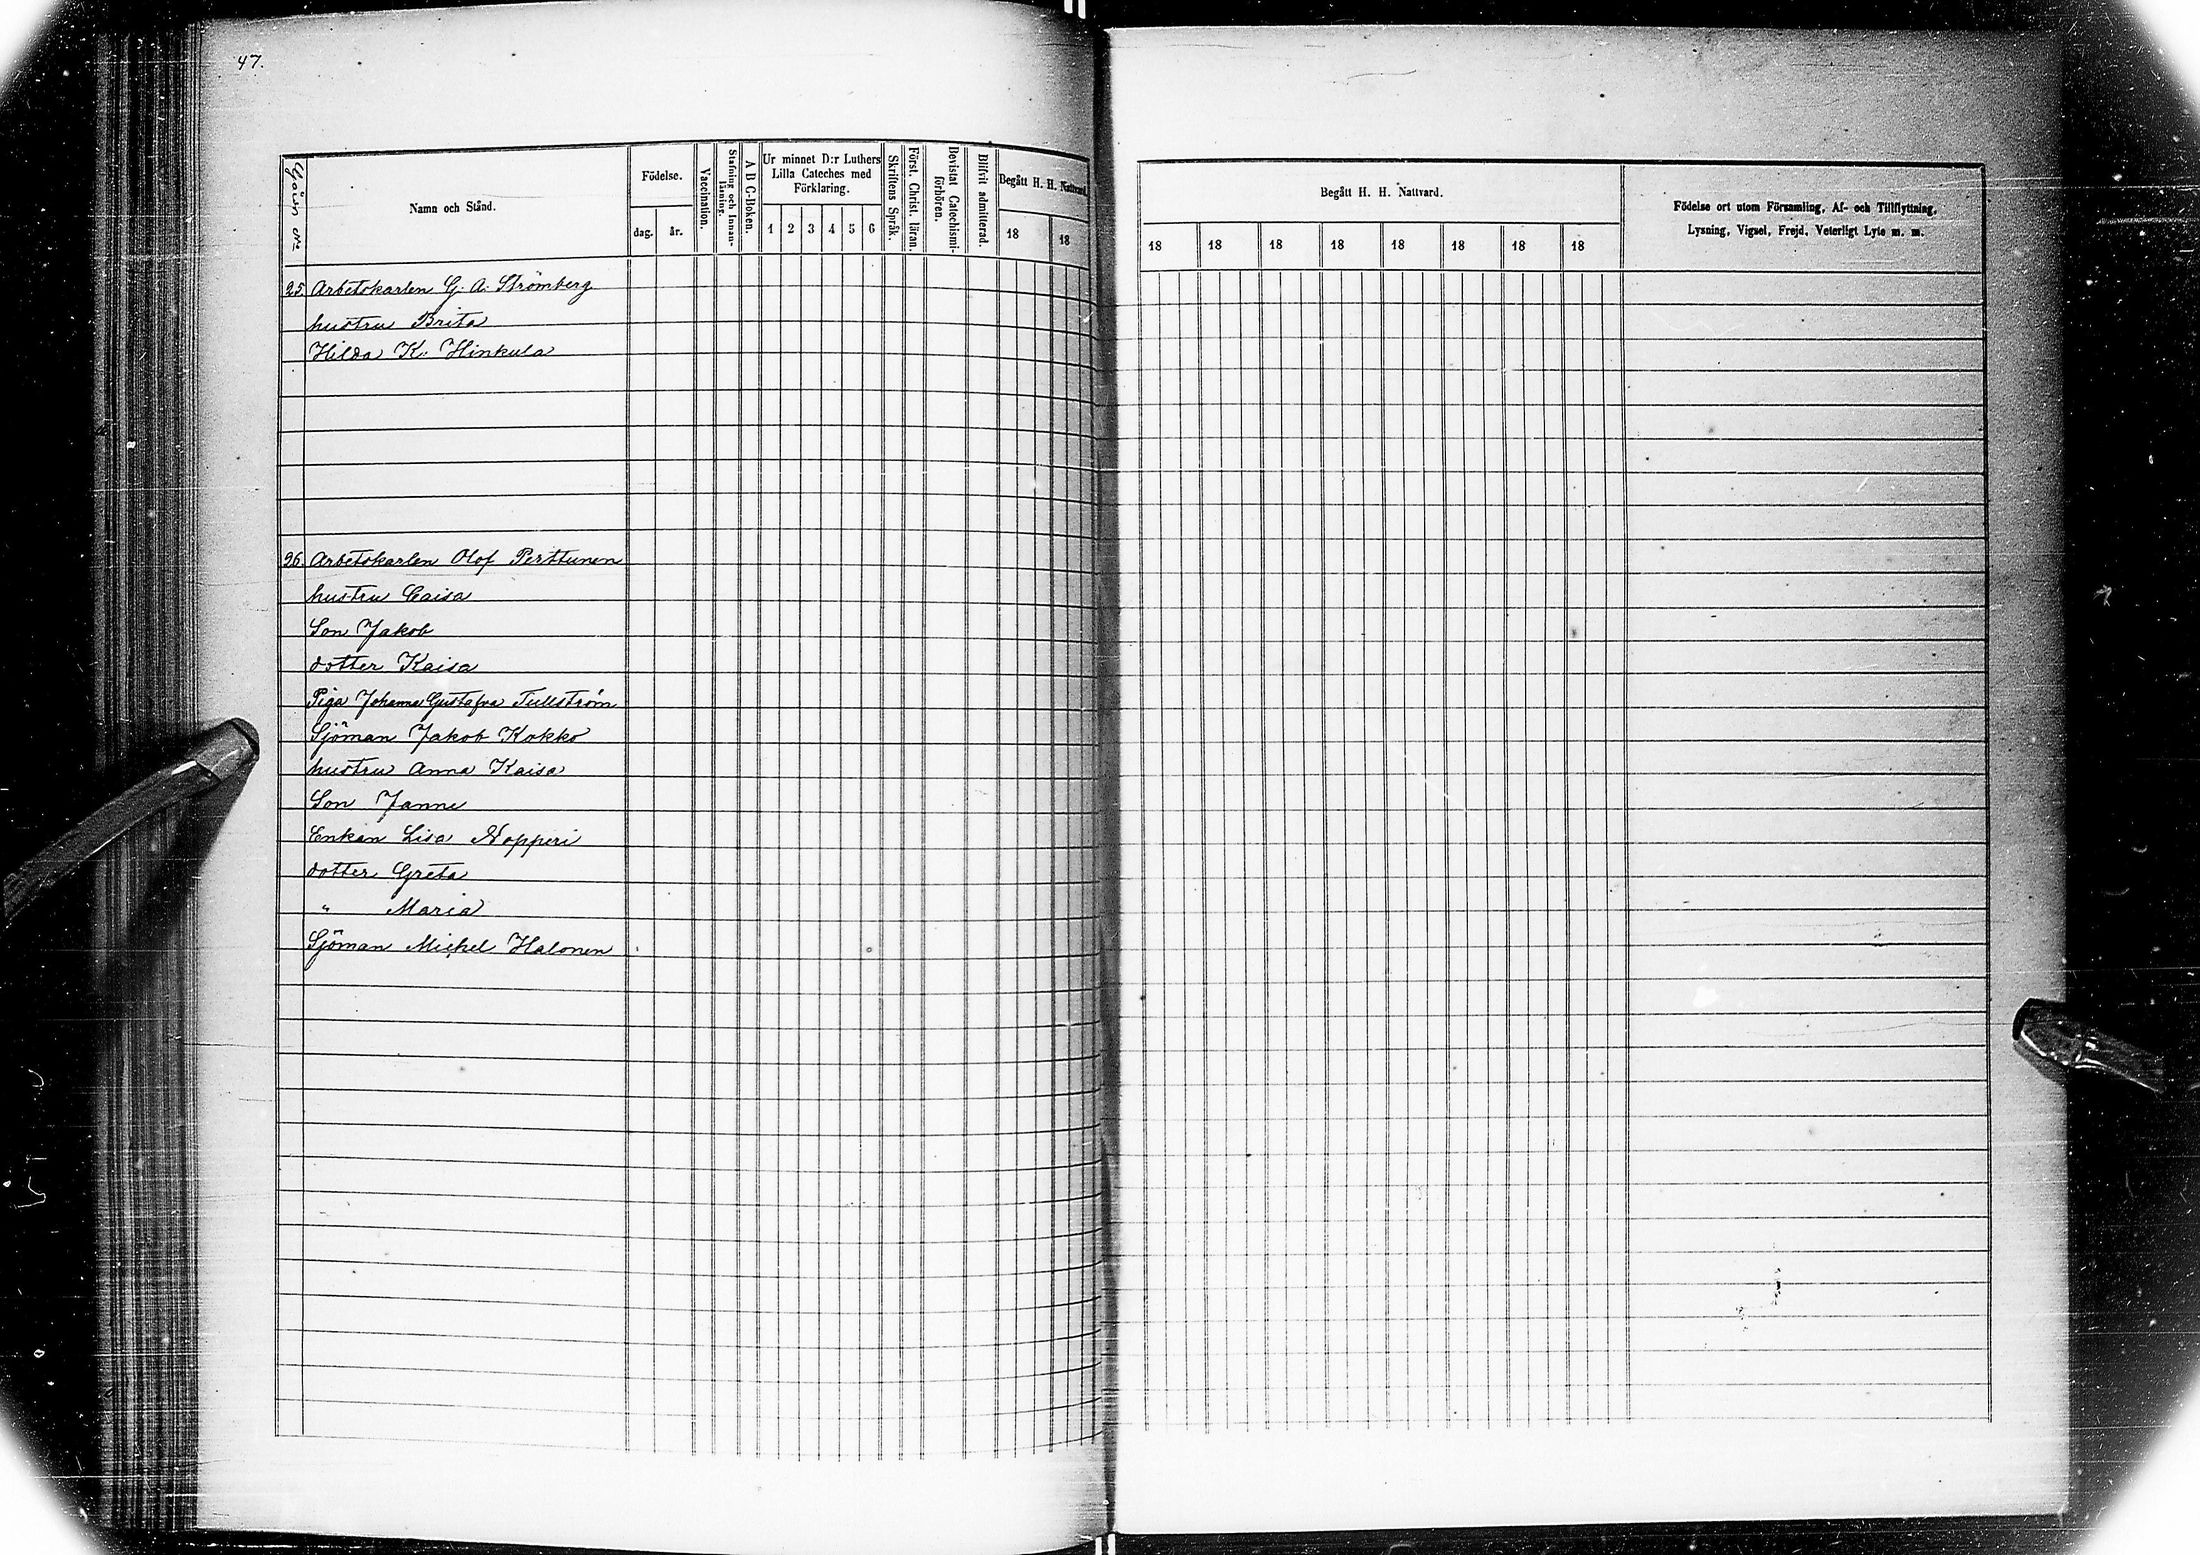 47.
Gården No
Namn och Stånd.
Födelse.
dag. år.
Vaccination.
Stafning och Innan-
läsning.
A B C-Boken.
Ur minnet D:r Luthers
Lilla Cateches med
Förklaring.
1 2 3 4 5 6
Skriftens Språk.
Först. Christ. läran.
Bevistat Catechismi-
förhören.
Blifvit admitterad.
Begått H. H. Nattvard.
18 18
Begått H. H. Nattvard.
18 18 18 18 18 18 18 18
Födelse ort utom Församling, Af- och Tillflyttning,
Lysning, Vigsel, Frejd, Veterligt Lyte m. m.
25. Arbetskarlen G. A. Strömberg
hustru Brita
Hilda K. Hinkula
26. Arbetskarlen Olof Perttunen
hustru Caisa
Son Jakob
dotter Kaisa
Piga Johanna Gustafva Tullström
Sjöman Jakob Kokko
hustru Anna Kaisa
Son Janne
Enkan Lisa Nopperi
dotter Greta
" Maria
Sjöman Mickel Halonen